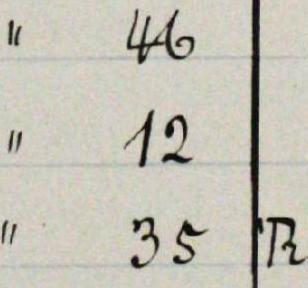 " 46
" 12
" 35 R